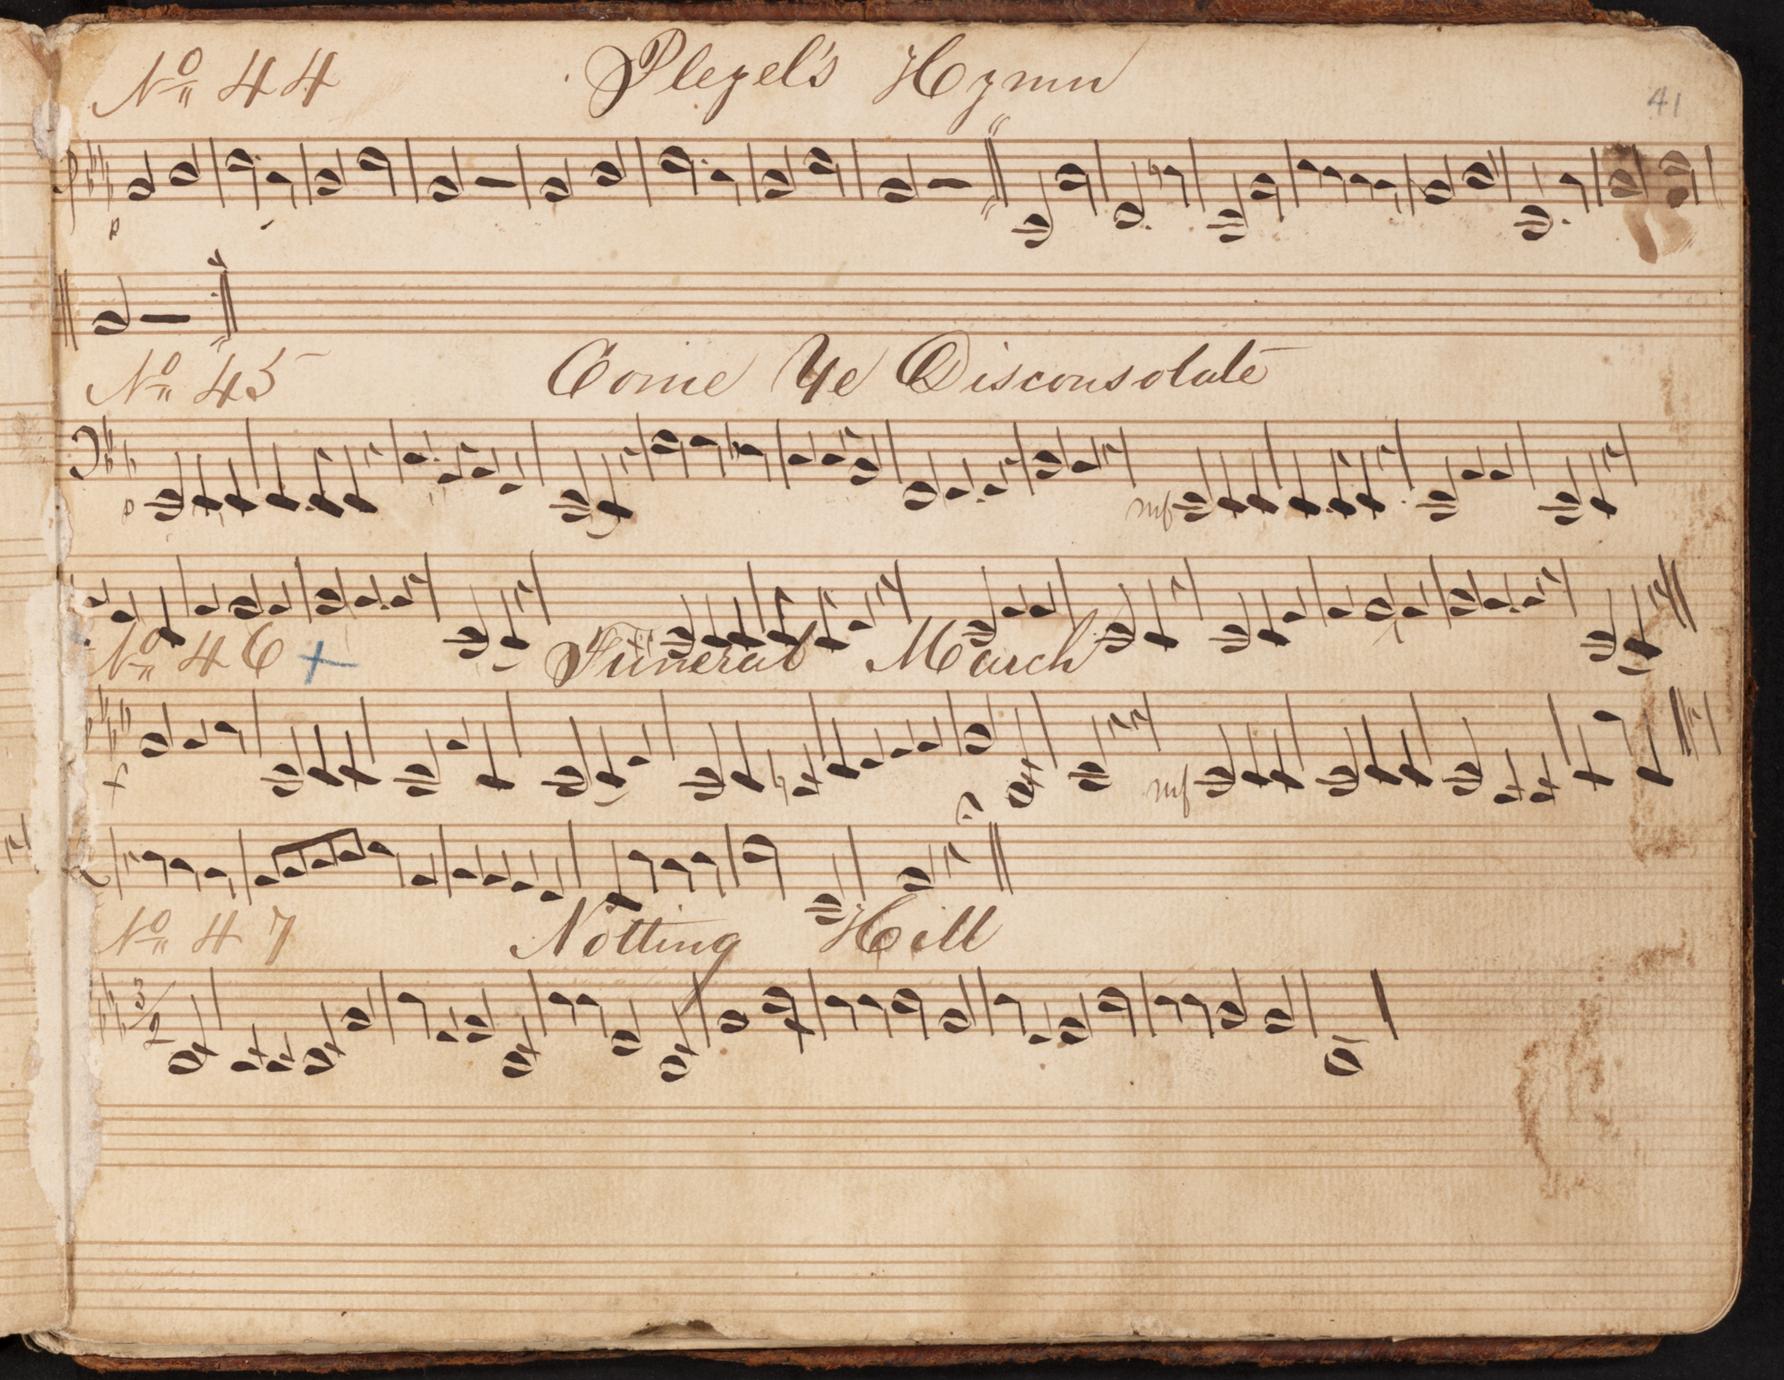 No 44 Pleyel's Hymn
41
p
No 45 Come Ye Disconsolate
p mf
No 46 + Funeral March
mf
No 47 Notting Hill
3/2